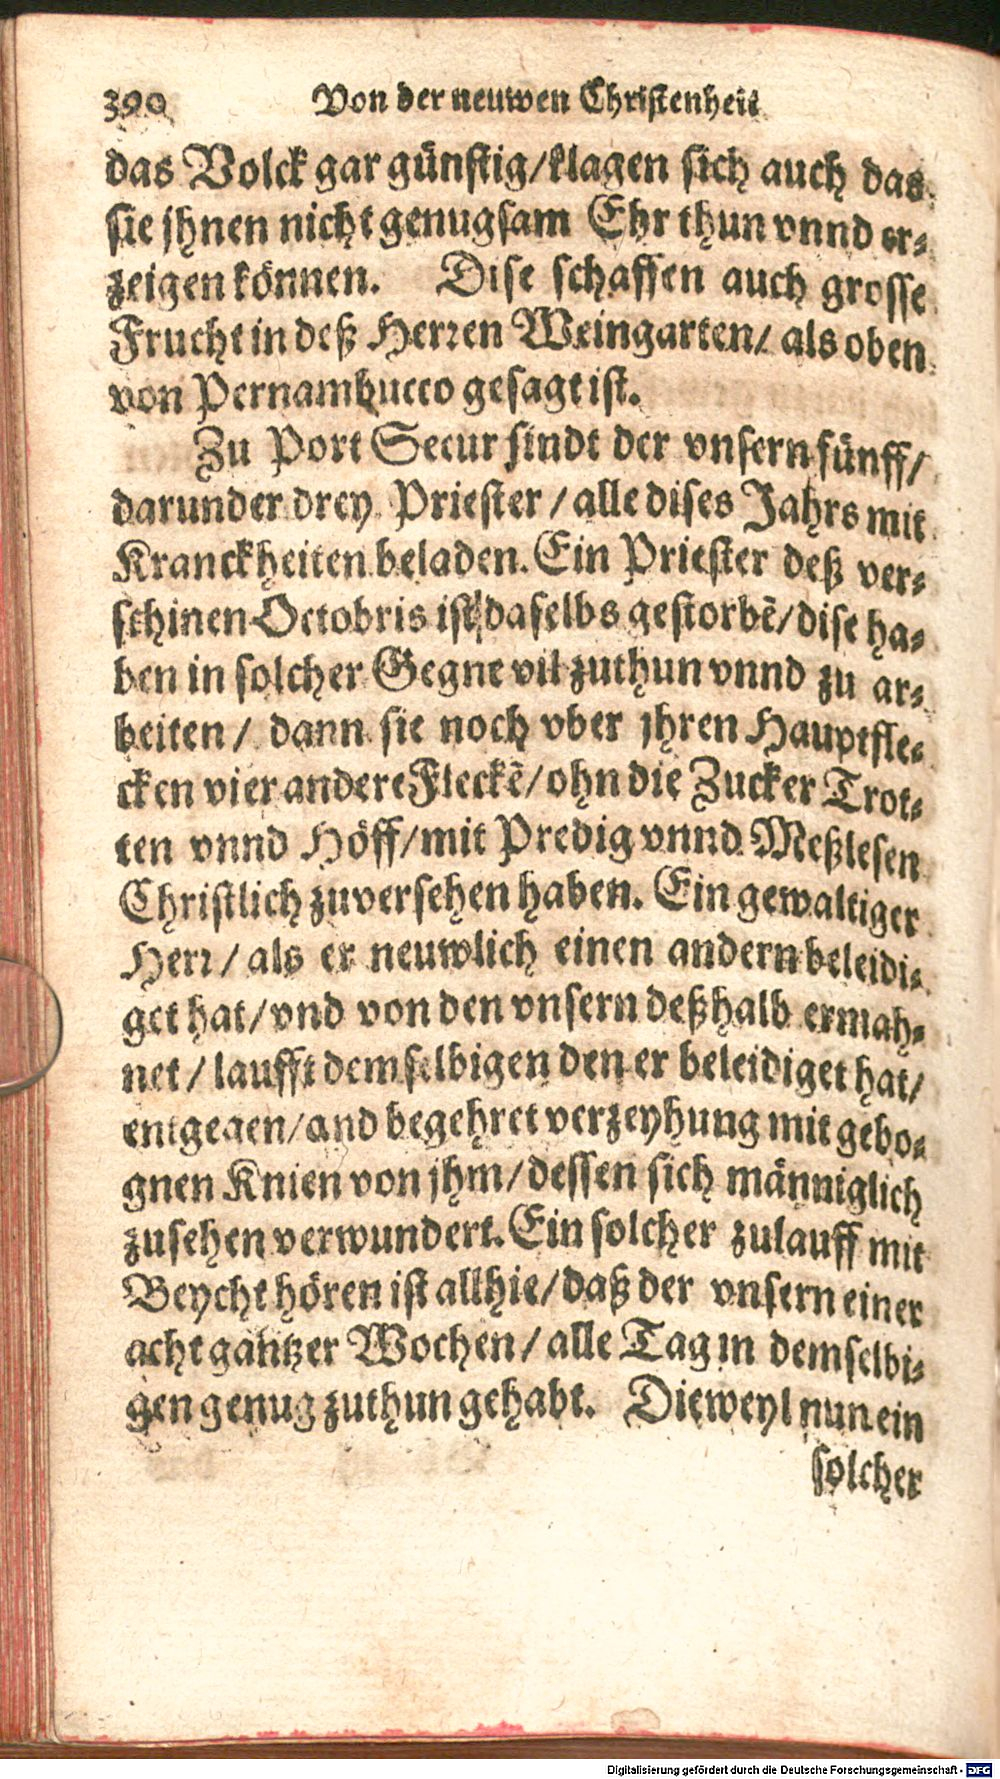 390 Von der neuwen Christenheit
das Volck gar günstig/klagen sich auch das
sie jhnen nicht genugsam Ehr thun vnnd er⸗
zeigen können. Dise schaffen auch grosse
Frucht in deß Herren Weingarten/ als oben
von Pernambucco gesagt ist.
Zu Port Secur sindt der vnsern fünff/
darunder drey Priester/alle dises Jahrs mit
Kranckheiten beladen. Ein Priester deß ver⸗
schinen Octobris ist daselbs gestorbẽ/dise ha⸗
ben in solcher Gegne vil zuthun vnnd zu ar⸗
beiten/ dann sie noch vber jhren Hauptfle⸗
cken vier andere Fleckẽ/ohn die Zucker Trot⸗
ten vnnd Höff/mit Predig vnnd Meßlesen
Christlich zuversehen haben. Ein gewaltiger
Herr/als er neuwlich einen andern beleidi⸗
get hat/vnd von den vnsern deßhalb ermah⸗
net/laufft demselbigen den er beleidiget hat/
entgegen/and begehret verzeyhung mit gebo⸗
gnen Knien von jhm/dessen sich männiglich
zusehen verwundert. Ein solcher zulauff mit
Beycht hören ist allhie/daß der vnsern einer
acht gantzer Wochen/alle Tag in demselbi⸗
gen genug zuthun gehabt. Dieweyl nun ein
solcher
Digitalisierung gefördert durch die Deutsche Forschungsgemeinschaft - DFG